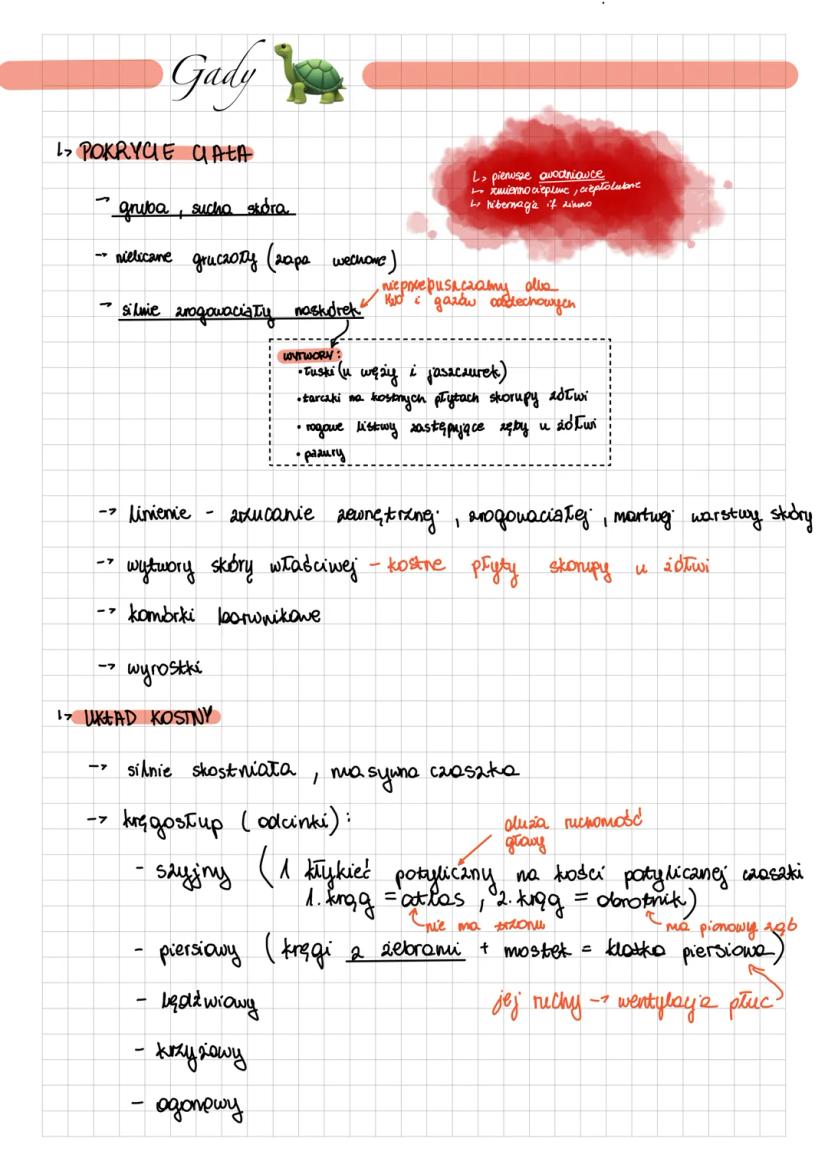 Gady
↳ POKRYCIE CIAŁA
↳ pierwsze owodniowce
↳ zmiennocieplne, ciepłolubne
↳ hibernacja if zimno
→ gruba, sucha skóra
→ nieliczne gruczoły (zapa wechowe)
→ silnie zrogowaciały naskórek
nieprzepuszczalny dla
H₂O i gazów oddechowych
WYTWORY:
• łuski (u węży i jaszczurek)
• tarczki na kostnych płytach skorupy żółwi
• rogowe listwy zastępujące zęby u żółwi
• pazury
→ linienie - zrzucanie zewnętrznej, zrogowaciałej, martwej warstwy skóry
→ wytwory skóry właściwej - kostne płyty skorupy u żółwi
→ komórki barwnikowe
→ wyrostki
↳ UKŁAD KOSTNY
→ silnie skostniała, masywna czaszka
→ kręgosłup (odcinki):
duża ruchomość
głowy
- szyjny (1 kłykieć potyliczny na kości potylicznej czaszki
1. kręg = atlas, 2. kręg = obrotnik)
nie ma trzonu
ma pionowy ząb
- piersiowy (kręgi z żebrami + mostek = klatka piersiowa)
- lędźwiowy
jej ruchy → wentylacja płuc
- krzyżowy
- ogonowy